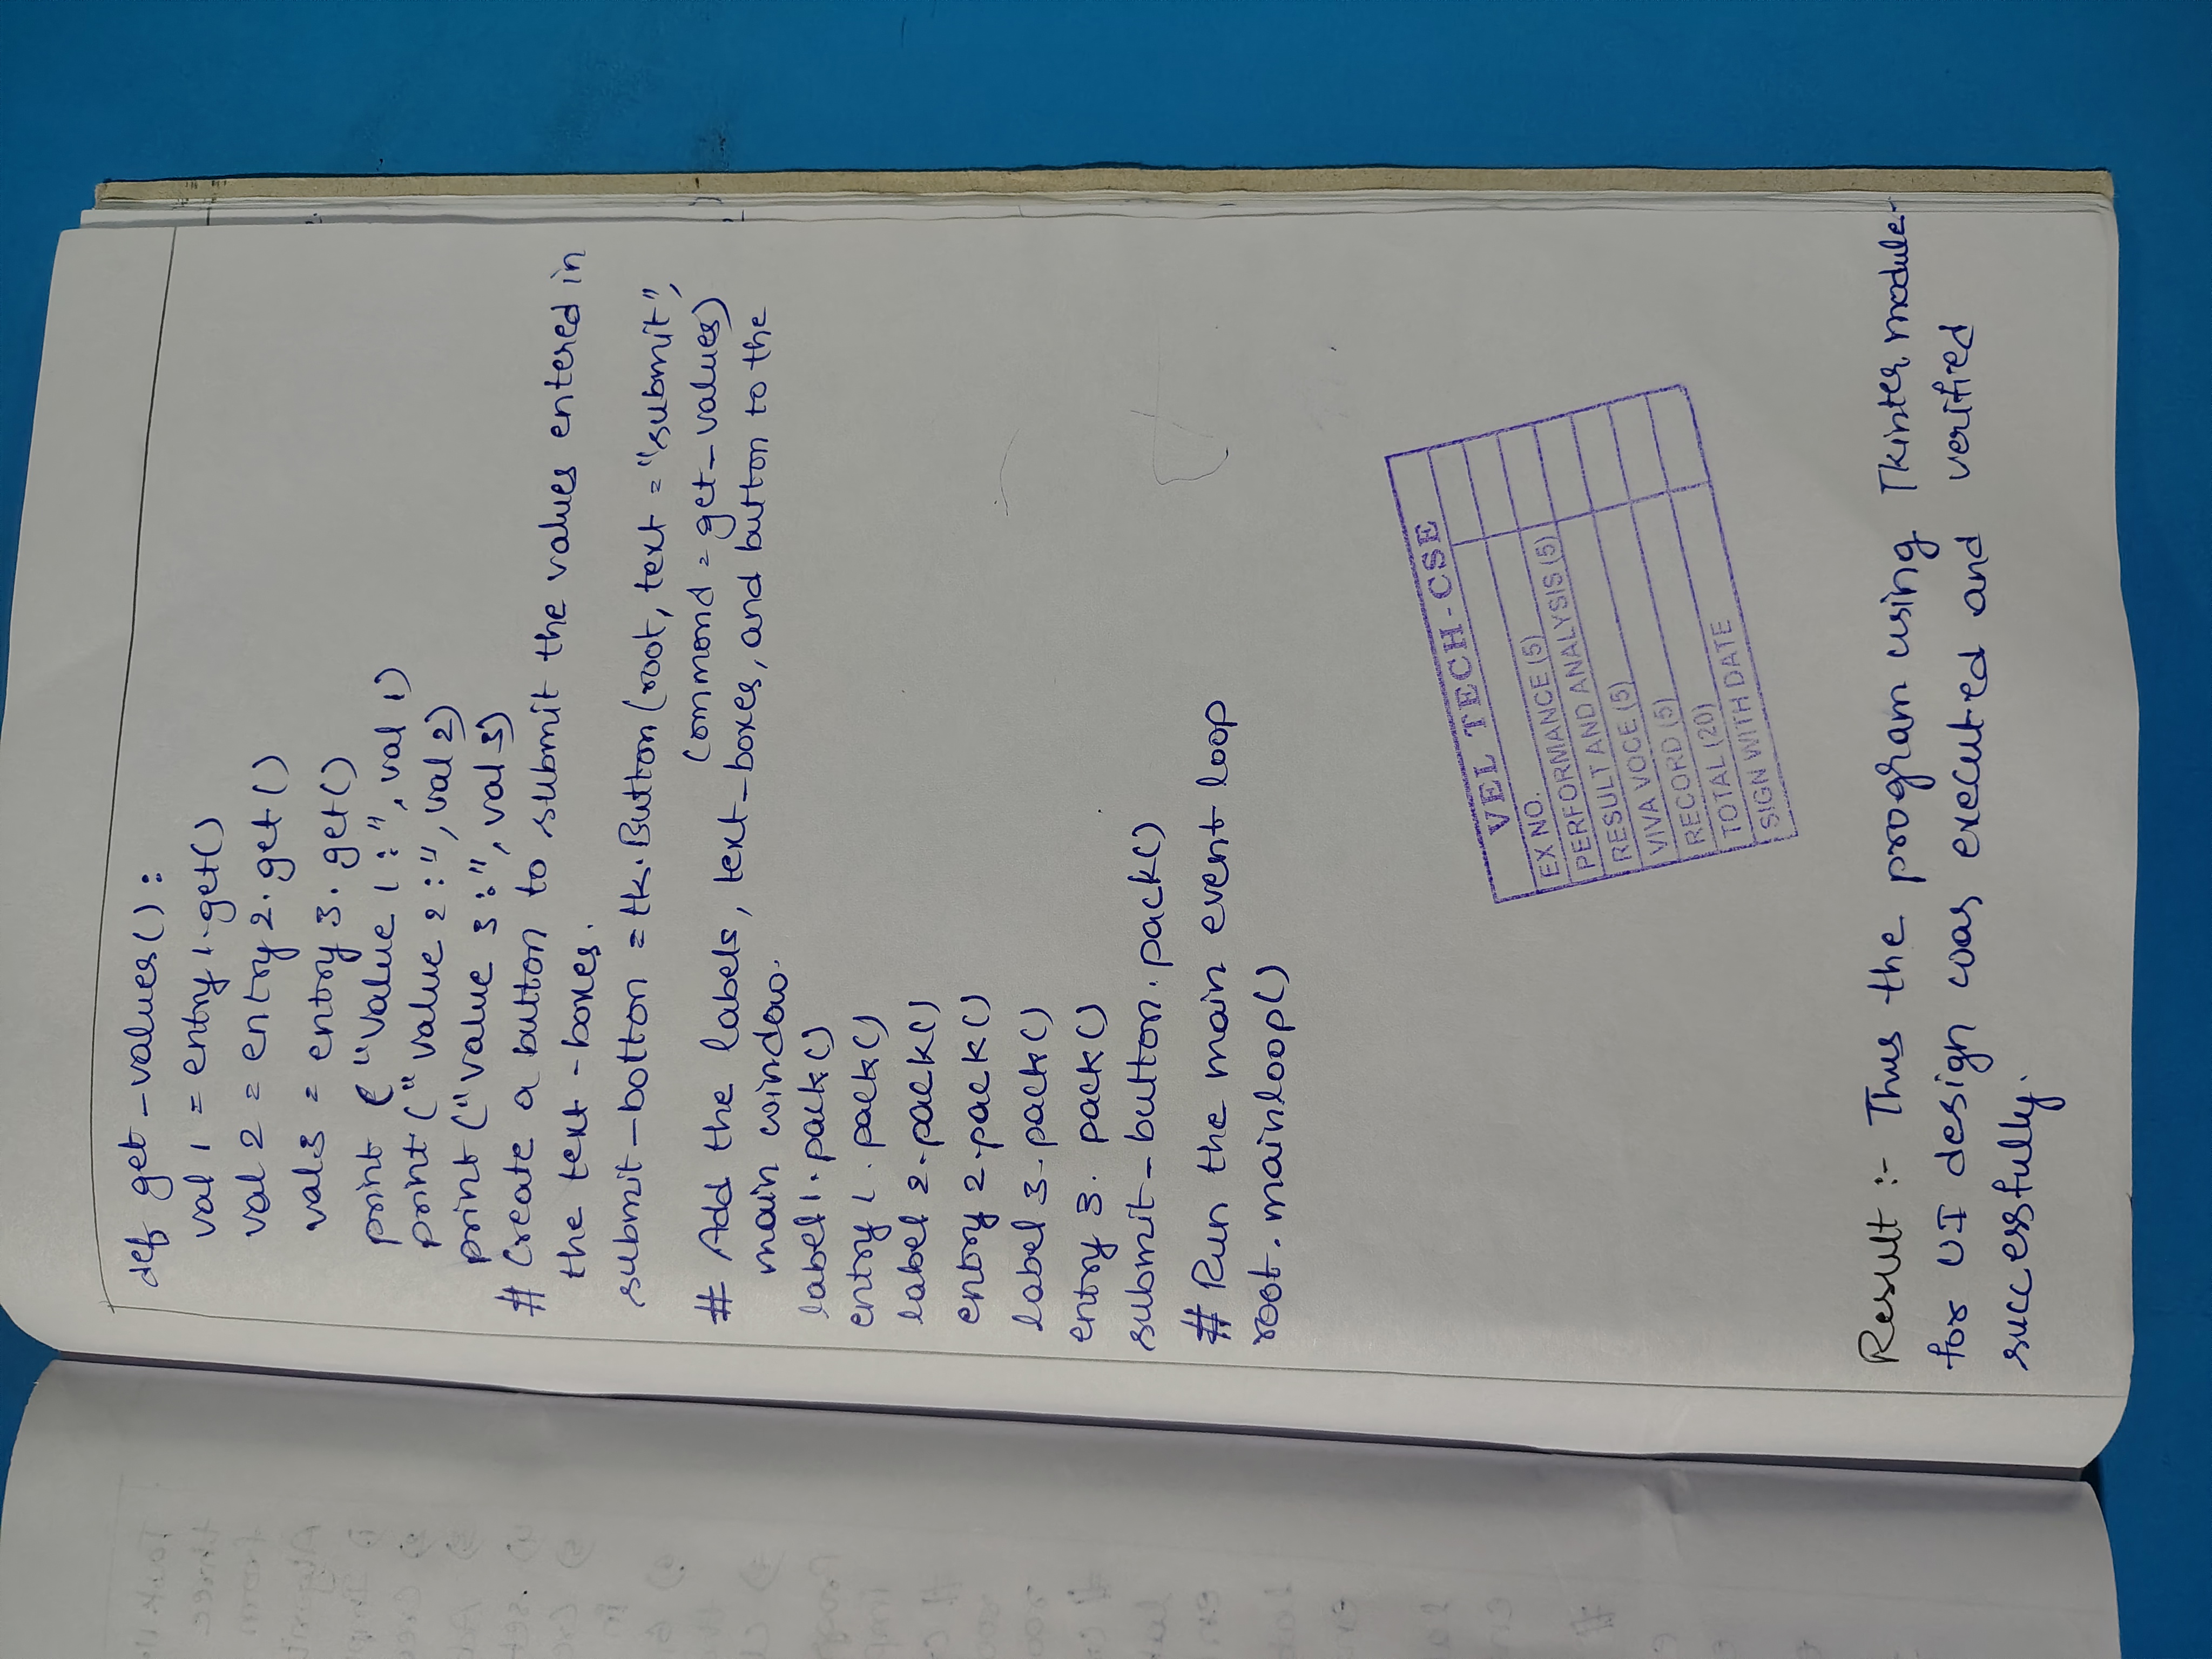 def get_values():
val 1 = entry 1.get()
val 2 = entry 2.get()
val3 = entry 3.get()
print ("Value 1:", val 1)
print ("Value 2:", val 2)
print ("value 3:", val 3)
# Create a button to submit the values entered in
the text-boxes.
submit_botton = tk.Button (root, text = "submit",
commond = get_values)
# Add the labels, text_boxes, and button to the
main window.
label 1.pack()
entry 1.pack()
label 2.pack()
entry 2.pack()
label 3.pack()
entry 3.pack()
submit_button.pack()
# Run the main event loop
root.mainloop()
VEL TECH-CSE
EX NO.
PERFORMANCE (5)
RESULT AND ANALYSIS (5)
VIVA VOCE (5)
RECORD (5)
TOTAL (20)
SIGN WITH DATE
Result :- Thus the program using Tkinter module
for UI design was executed and verified
successfully.